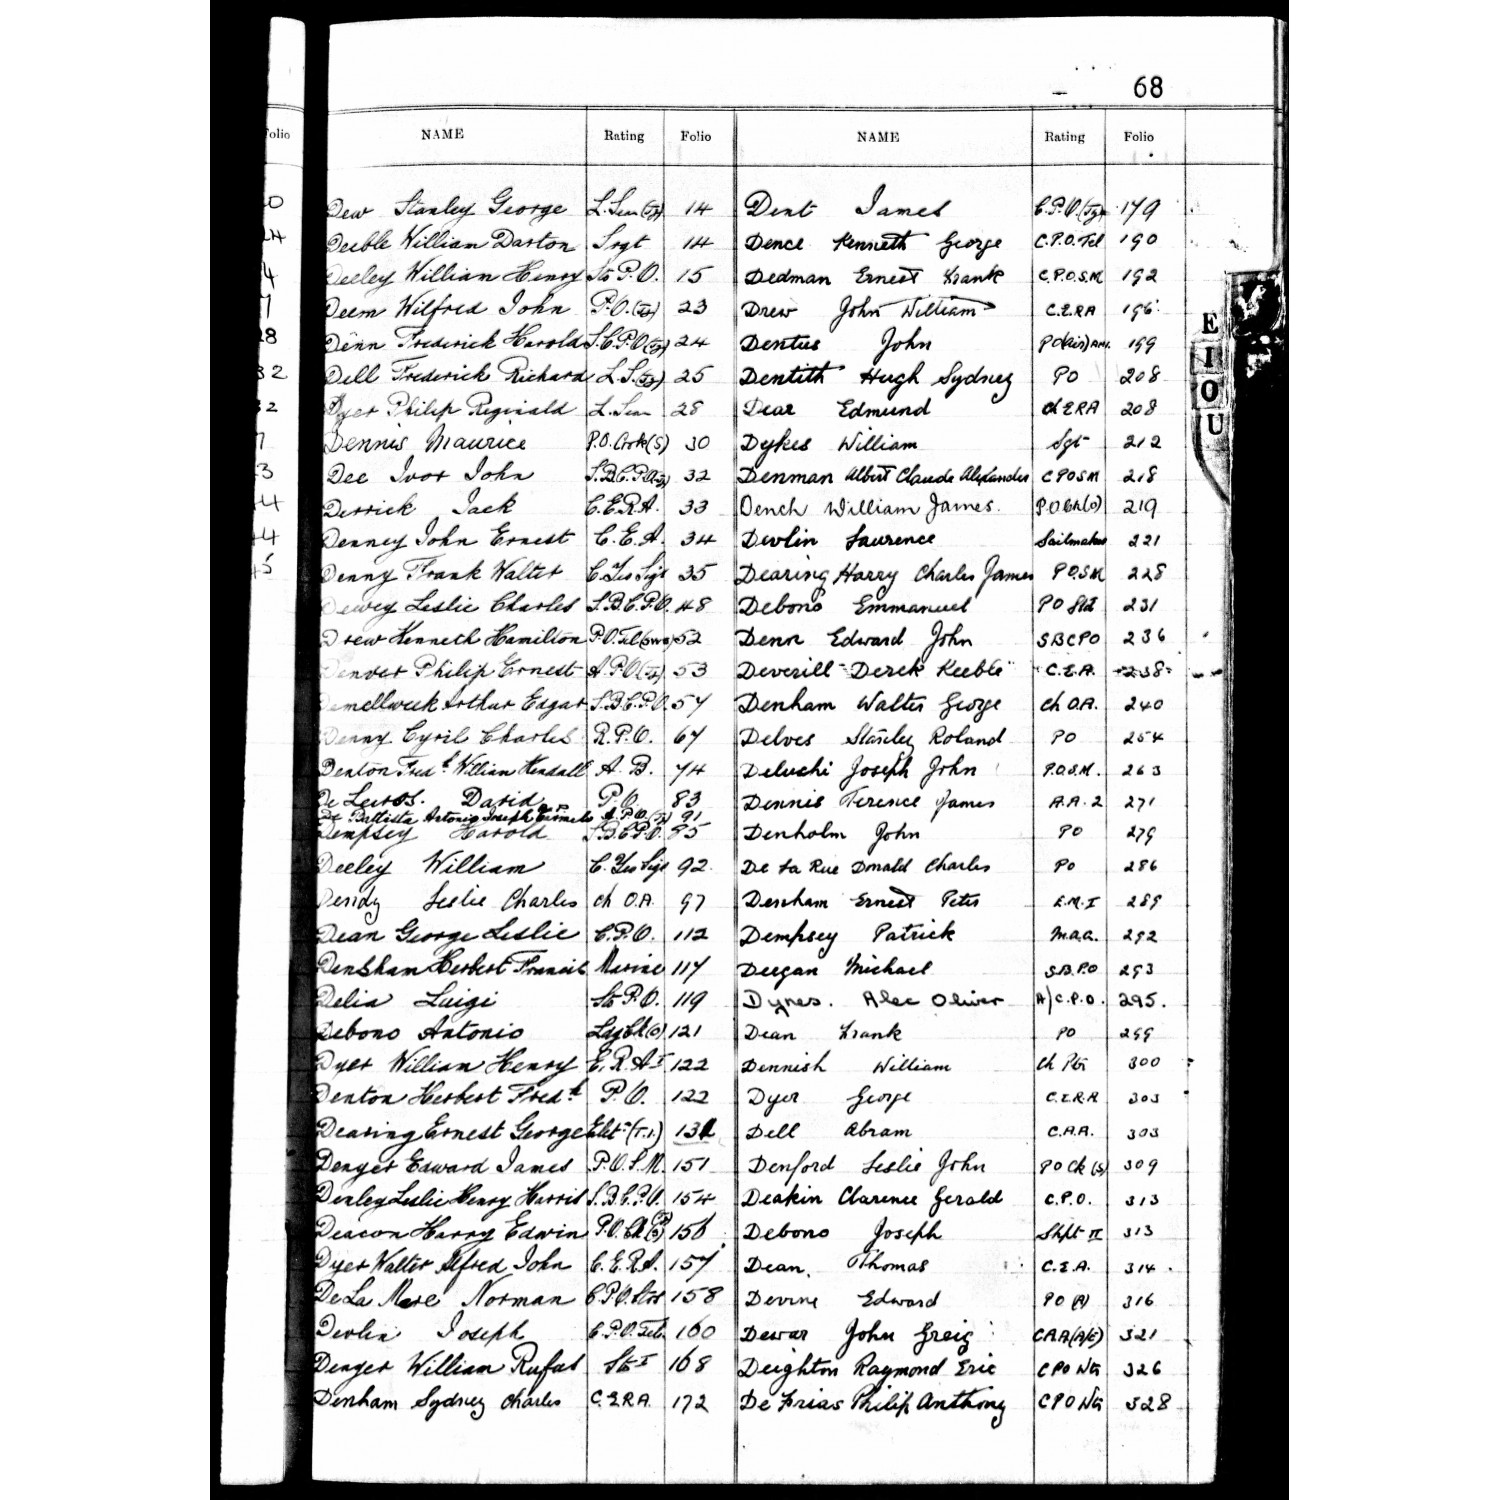 68
Folio
NAME Rating Folio
Dew Stanley George L. Sea (Tg) 14
Deeble William Darton Srgt 14
Deeley William Henry Sto P.O. 15
Deem Wilfred John P.O. (Tg) 23
Denn Frederick Harold S.C.P.O (Tg) 24
Dell Frederick Richard L.S. (Tg) 25
Dyer Philip Reginald L. Sea 28
Dennis Maurice P.O. Cook (S) 30
Dee Ivor John S.B.C.P.O. 32
Derrick Jack C.E.R.A. 33
Denney John Ernest C.E.A. 34
Denny Frank Walter C. Yeo Sigs 35
Dewey Leslie Charles S.B.C.P.O. 48
Drew Kenneth Hamilton P.O. Tel (SWS) 52
Denver Philip Ernest A.P.O (Tg) 53
Demellweek Arthur Edgar S.B.C.P.O. 57
Denny Cyril Charles R.P.O. 67
Denton Fredk William Kendall A.B. 74
De David P.O. 83
De Battista Antonio Joseph Carmelo A.P.O. (Tg) 91
Dempsey Harold S.B.C.P.O. 85
Deeley William C. Yeo Sigs 92
Dendy Leslie Charles Ch O.A. 97
Dean George Leslie C.P.O. 112
Densham Herbert Francis Marine 117
Delia Luigi Sto P.O. 119
Debono Antonio Ldg Ck (O) 121
Dyer William Henry E.R.A I 122
Denton Herbert Fredk P.O. 122
Dearing Ernest George Elect (T.I.) 131
Denyer Edward James P.O.S.M. 151
Denley Leslie Henry Harris S.B.C.P.O. 154
Deacon Harry Edwin P.O. Ck 156
Dyer Walter Alfred John C.E.R.A. 157
De La Mare Norman C.P.O. Strs 158
Devlin Joseph C.P.O. Tel. 160
Denyer William Rufus Sto I 168
Denham Sydney Charles C.E.R.A. 172
NAME Rating Folio
Dent James C.P.O. (Tg) 179
Dence Kenneth George C.P.O. Tel 190
Dedman Ernest Frank C.P.O.S.M. 192
Drew John William C.E.R.A 196
Dentus John PO (Air) AM. 199
Dentith Hugh Sydney PO 208
Dear Edmund Ch ERA 208
Dykes William Sgt 212
Denman Albert Claude Alexander C P O S M 218
Dench William James. P.O Ck (O) 219
Devlin Laurence Sailmaker 221
Dearing Harry Charles James P.O.S.M 228
Debono Emmanuel PO Std 231
Denn Edward John SBCPO 236
Deverill Derek Keeble C.E.A. 238
Denham Walter George Ch O.A. 240
Delves Stanley Roland PO 254
Deluchi Joseph John P.O.S.M. 263
Dennis Terence James A.A.2 271
Denholm John PO 279
De La Rue Donald Charles PO 286
Denham Ernest Peter E.M.I 289
Dempsey Patrick M.A.A. 292
Deegan Michael S.B.P.O 293
Dynes. Alec Oliver A/C.P.O. 295.
Dean Frank PO 299
Dennish William Ch Ptr 300
Dyer George C.E.R.A 303
Dell Abram C.A.A. 303
Denford Leslie John PO Ck (S) 309
Deakin Clarence Gerald C.P.O. 313
Debono Joseph Shpt II 313
Dean. Thomas C.E.A. 314
Devine Edward PO (A) 316
Dewar John Greig C.A.A (A/E) 321
Deighton Raymond Eric CPO Wtr 326
De Frias Philip Anthony CPO Wtr 328
E
I
O
U